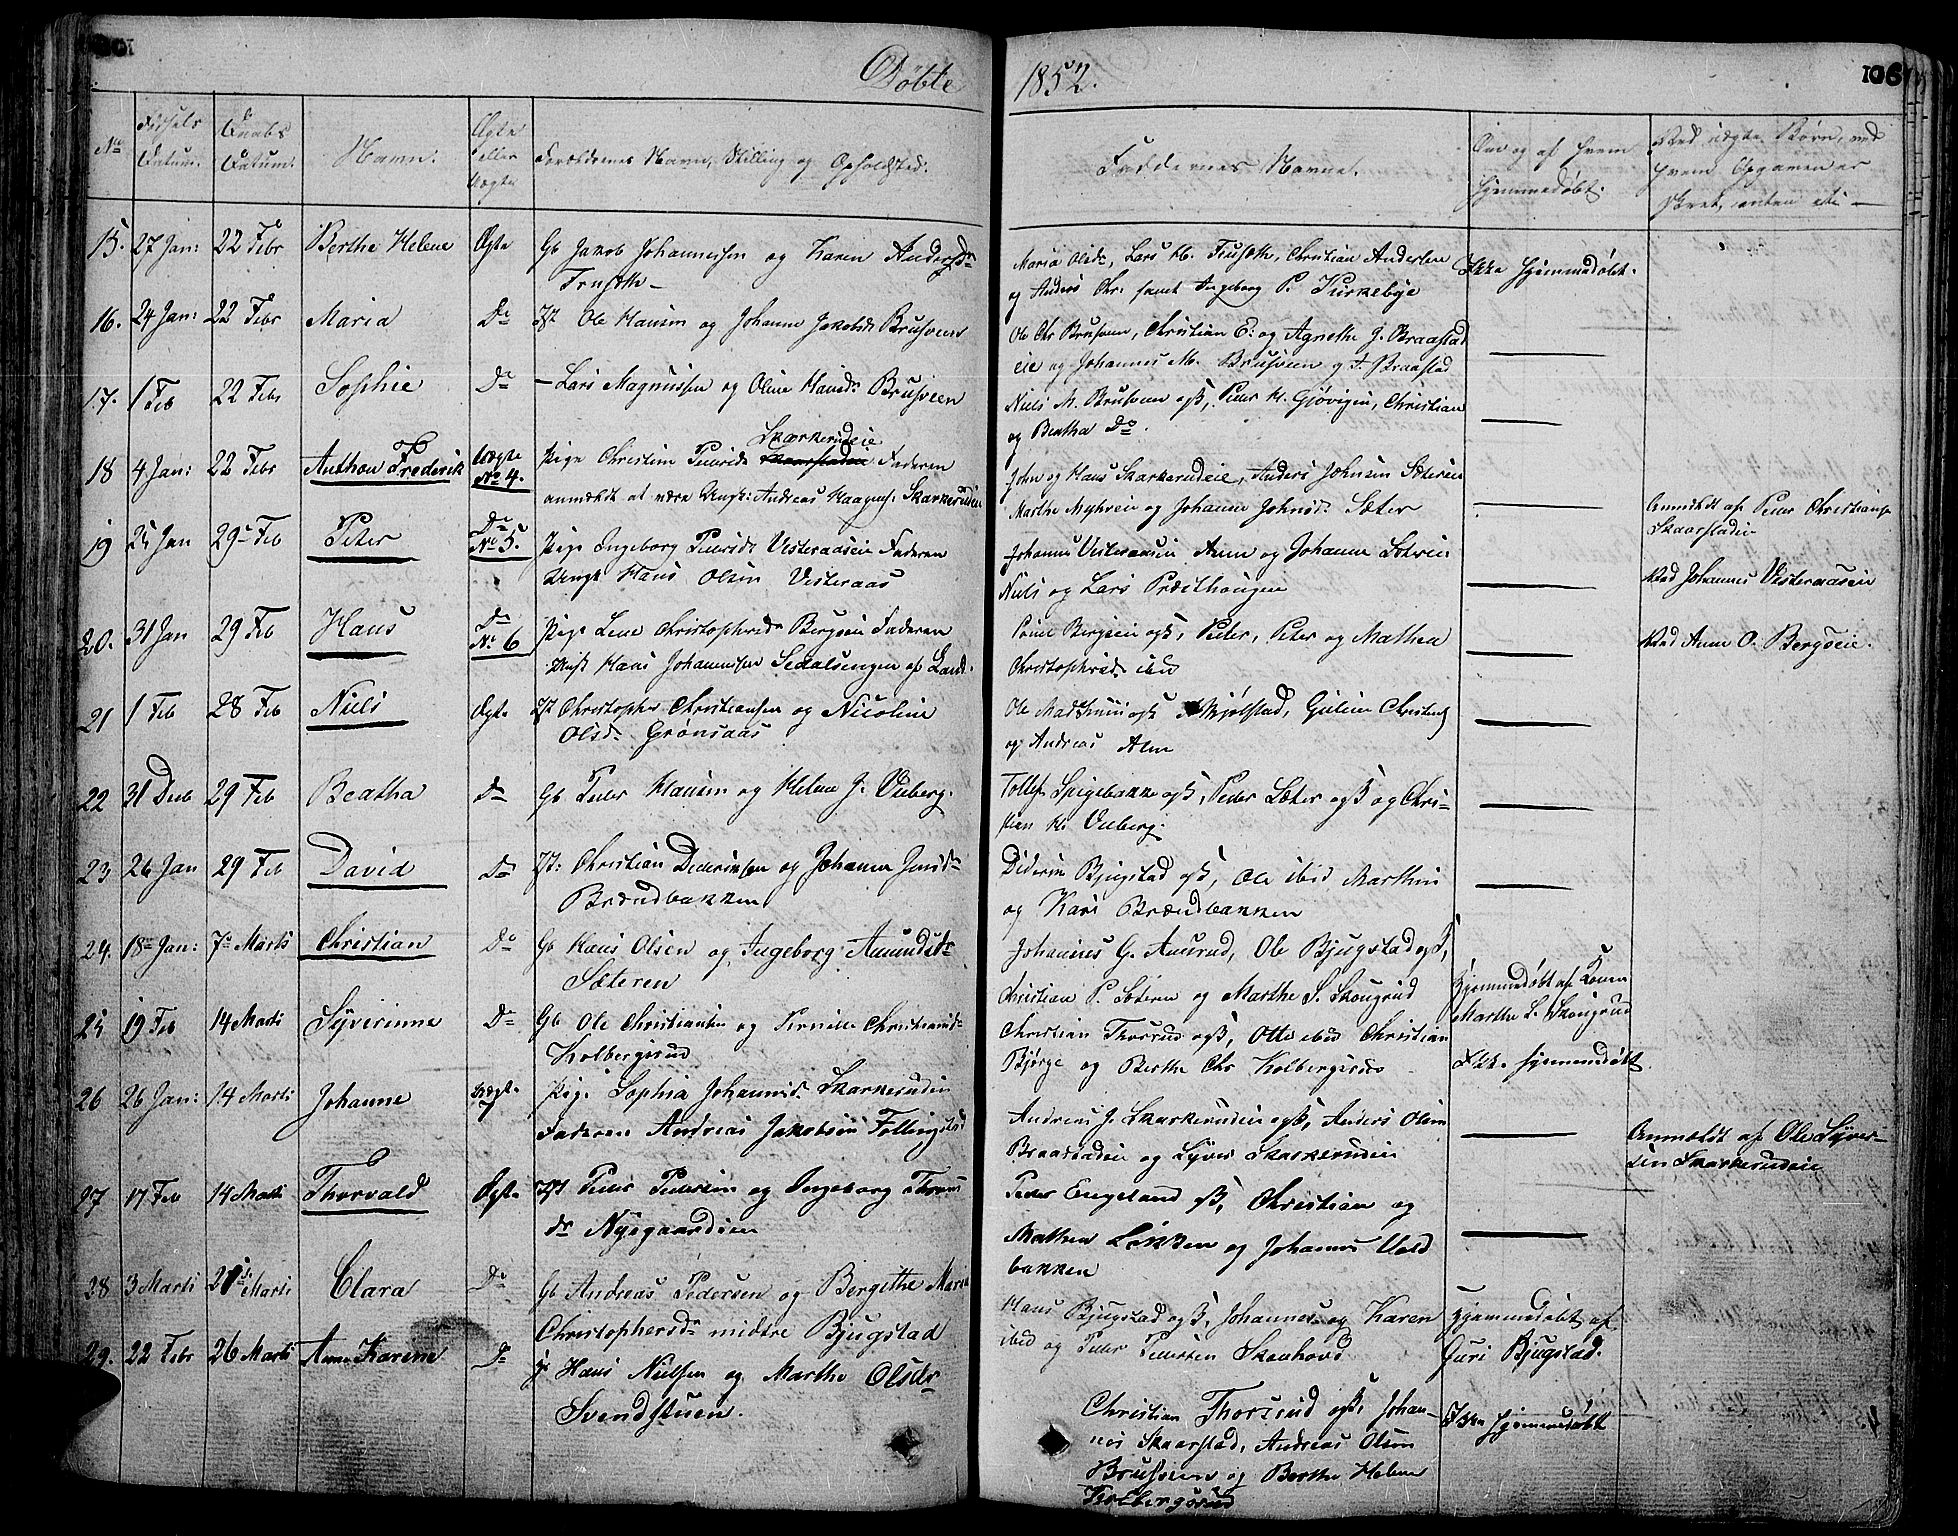 Døbte
1852.
106
No
Fødsels Datum.
Daabs Datum.
Navn.
Ægte eller Uægte
Forældrenes Navn, Stilling og Opholdsted.
Faddernes Navne.
Om og af hvem hjemmedøbt.
Ved uægte Børn, ved hvem Opgaven er skeet, enten
15. 27 Jan: 22 Febr Berthe Helene Ægte Gb Jakob Johannessen og Karen Andersdr
Maria Olsdr, Lars H. , Christian Andersen Ikke hjemmedøbt.
og Anders Chr. samt Ingeborg P. Kirkebye
16. 24 Jan: 22 Febr Maria Do Ole Hansen og Johanne Jakobsdr Brusveen
Ole Chr Brusveen, Christian E: og Agnethe J. Braastad
eie og Johannes M. Brusveen og J. Braastad
17. 1 Feb 22 Febr Sophie Do Lars Magnussen og Oline Hansdr Brusveen
Niels M. Brusveen og , Peder H. Gjøvigen, Christian
og Beatha Do.
18 4 Jan: 22 Febr Anthon Frederik Uægte No 4. Pige Christine Pedersdr Skaarstadeie Skarkerudeie Faderen
anmeldt at være Ungk: Andreas Haagens. Skarkerudeie
John og Hans Skarkerudeie, Anders Johnsen Sæteren
Marthe Myhren og Johanne Johnsdr Sæter
Anmeldt af Peder Christians
Skaarstadeie
19 25 Jan 29 Feb Peter Do No 5. Pige Ingeborg Pedersdr Vesteraaseie Faderen
Ungk Hans Olsen Vesteraas
Johannes Vesteraaseie Anne og Johanne
Niels og Lars Præsthaugen
Ved Johannes Vesteraaseie
20. 31 Jan 29 Feb Hans Do No 6 Pige Lene Christophersdr Bergseie Faderen
Ungk Hans Johannessen af Land.
Bergseie og , Peder, Peter og Mathea
Christophersdr ibid
Ved Anne O. Bergseie.
21 1 Feb 28 Feb Niels Ægte Christopher Christiansen og Nicoline
Olsdr Grønsaas
Ole og Mjølstad, Christensd
og Andreas Alm
22 31 Decb 29 Feb Beatha Do Gb Peder Hansen og Helene J. Vieberg.
Tollef Spigebakke og , Peder Sæter og og Chri-
stian H. Vieberg.
23 26 Jan 29 Feb David Do Christian Dideriksen og Johanne Jensdr
Brændbakken
Diderik Bjugstad og , Ole ibid Marthin
og Kari Brændbakken
24. 18 Jan: 7 Marts Christian Do Gb Hans Olsen og Ingeborg Amundsdr
Sæteren
Johannes G. Aamrud, Ole Bjugstad og ,
Christian P. Sæteren og Marthe S. Skougrud
Hjemmedøbt af Konen
Marthe S. Skougrud
25 19 Feb 14 Marts Syverinne Do Gb Ole Christiansen og Pernille Christiansdr
Kolbergsrud
Christian Thorsrud og , Otto ibid Christian
Bjørge og Berthe Chr Kolbergsrud
Ikke hjemmedøbt
26 26 Jan: 14 Marts Johanne Uægte 7 Pige Sophia Johannesdr Skarkerudeie
Faderen Andreas Jakobsen Follingstad
Andreas J. Skarkerudeie og , Anders Olsen
Braastadeie og Syver Skarkerudeie
Anmeldt af Ole Syver-
sen Skarkerudeie
27 17 Feb 14 Marts Thorvald Ægte Peder Pedersen og Ingeborg Thoms
dr Nygaardseie
Peder Engeland og , Christian og
Mathea Løkken og Johannes Vold
bakken
28 3 Marts 21 Marts Clara Do Gb Andreas Pedersen og Bergithe Marie
Christophersdr midtre Bjugstad
Hans Bjugstad og , Johannes og Karen
ibid og Peder Pedersen Skonhovd
Hjemmedøbt af
Guri Bjugstad.
29. 22 Febr 26 Marts Anne Karine Do Hans Nielsen og Marthe Olsdr
Svendstuen.
Christian Thorsrud og , Johan-
nes Skaarstad, Andreas Olsen
Brusveen og Berthe Helene
Kolbergsrud
Ikke hjemmedøbt